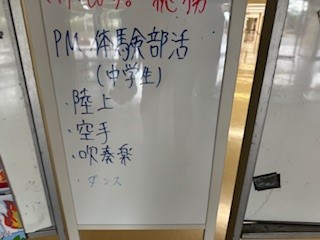 PM 体験部活
(中学生)
・陸上
・空手
・吹奏楽
・ダンス